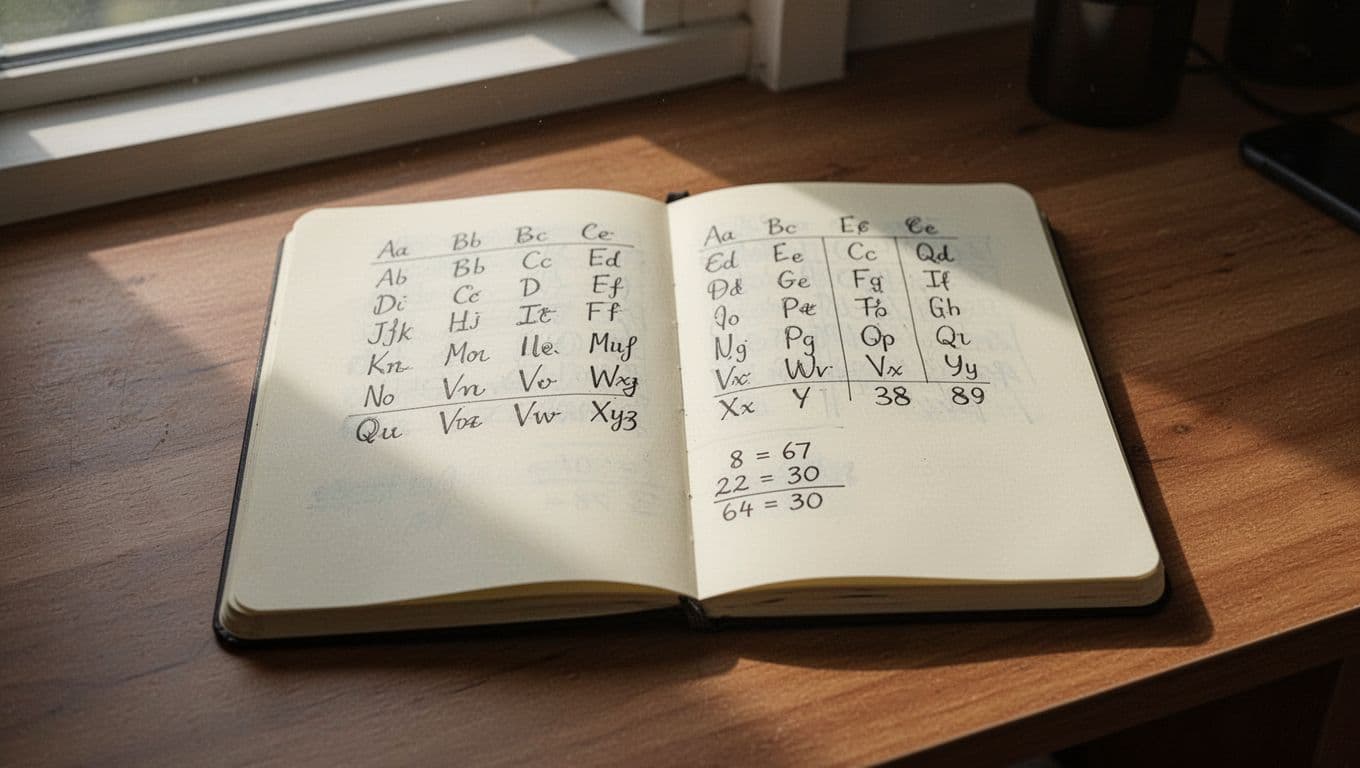 Aa Bb Bc Ce
Ab Bb Cc Ed
Di Cc D Ef
Jfk Hj Ff
Kn Mor Muf
No Vn Vo Wxg
Qu Vw Xyz
Aa Bc Ce
Ed Ee Cc Qd
Dd Ge Fg If
Jo Gh
Ng Pg Qp Qr
Vx Wr Vx Yy
Xx Y 38 89
8 = 67
22 = 30
64 = 30